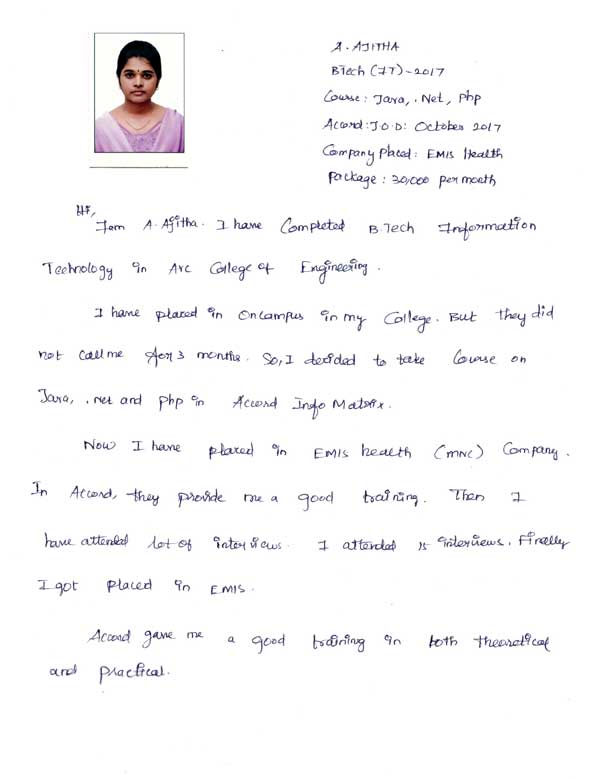 A. AJITHA
BTech (IT) - 2017
Course: Java, .Net, Php
Accord: J.O.D: October 2017
Company Placed: EMIS Health
Package: 30,000 per month
Hi,
I am A. Ajitha. I have Completed B.Tech Information
Technology in Arc College of Engineering.
I have placed in Oncampus in my College. But they did
not call me for 3 months. So, I decided to take Course on
Java, .Net and Php in Accord Info Matrix.
Now I have placed in EMIS health (MNC) Company.
In Accord, they provide me a good training. Then I
have attended lot of interviews. I attended 15 interviews. Finally
I got placed in EMIS.
Accord gave me a good training in both theoretical
and practical.